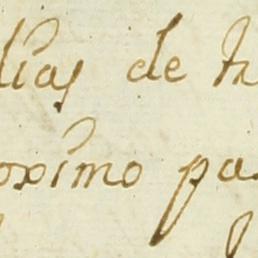 dias de
oximo pa